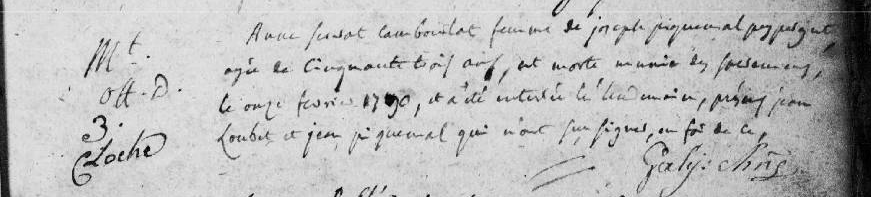 Anne servat Lamboulat femme de joseph piquemal
Mt. agée de Cinquante trois ans, est morte munie des sacremens,
off. D. le onze fevrier 1790, et a été enterrée le lendemain, présens jean
3. Loubet et jean piquemal qui n'ont su signer, en foi de ce,
Cloche
Galy: